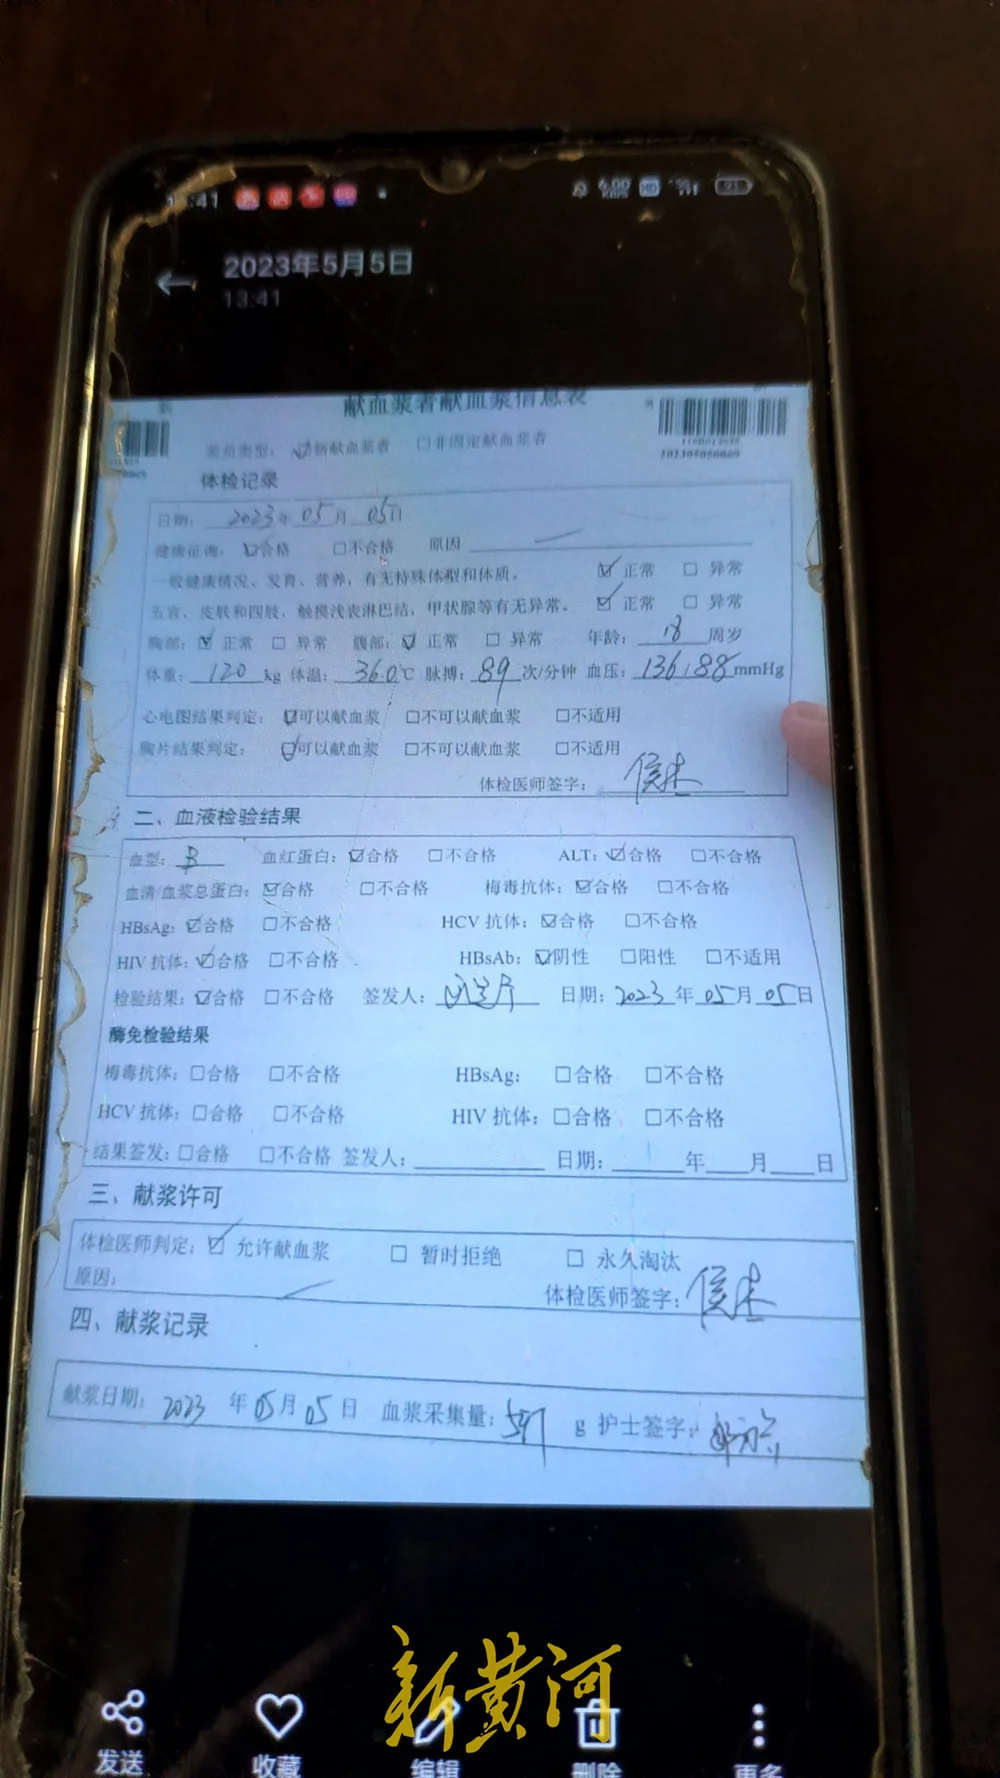 :41
6.00 KB/s HD 91
2023年5月5日
13:41
献血浆者献血浆信息表
浆员类型： ☑新献血浆者 □非固定献血浆者
202305050069
体检记录
日期： 2023年 05月 05日
健康征询： ☑合格 □不合格 原因
一般健康情况、发育、营养，有无特殊体型和体质。 ☑ 正常 □ 异常
五官、皮肤和四肢，触摸浅表淋巴结，甲状腺等有无异常。 ☑ 正常 □ 异常
胸部：☑ 正常 □ 异常 腹部：☑ 正常 □ 异常 年龄： 18 周岁
体重： 120 kg 体温： 36.0℃ 脉搏： 89 次/分钟 血压： 136/88mmHg
心电图结果判定： ☑可以献血浆 □不可以献血浆 □不适用
胸片结果判定： ☑可以献血浆 □不可以献血浆 □不适用
体检医师签字：
二、血液检验结果
血型： B 血红蛋白：☑合格 □不合格 ALT：☑合格 □不合格
血清/血浆总蛋白：☑合格 □不合格 梅毒抗体：☑合格 □不合格
HBsAg：☑合格 □不合格 HCV 抗体：☑合格 □不合格
HIV 抗体：☑合格 □不合格 HBsAb：☑阴性 □阳性 □不适用
检验结果：☑合格 □不合格 签发人： 日期：2023 年 05月 05日
酶免检验结果
梅毒抗体：□合格 □不合格 HBsAg： □合格 □不合格
HCV 抗体：□合格 □不合格 HIV 抗体：□合格 □不合格
结果签发：□合格 □不合格 签发人： 日期： 年 月 日
三、献浆许可
体检医师判定：☑ 允许献血浆 □ 暂时拒绝 □ 永久淘汰
原因：
体检医师签字：
四、献浆记录
献浆日期： 2023 年05月05日 血浆采集量： g 护士签字：
新黄河
发送 收藏 编辑 删除 更多